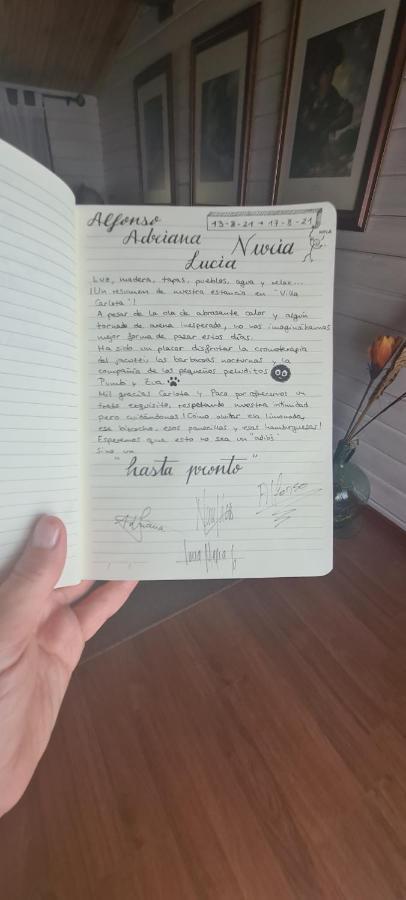 Alfonso
Adriana
Lucía
Nuria
13-8-21 → 17-8-21
HOLA
Luz, madera, tapas, pueblos, agua y relax...
¡Un resumen de nuestra estancia en "Villa
Carlota"!
A pesar de la ola de abrasante calor y algún
tornado de arena inesperado, no nos imaginábamos
mejor forma de pasar estos días.
Ha sido un placer disfrutar la cromoterapia
del jacuzzi, las barbacoas nocturnas y la
compañía de los pequeños peluditos
Pumba y Zua.
Mil gracias Carlota y Paco por ofrecernos un
trato exquisito, respetando nuestra intimidad
pero cuidándonos! Cómo olvidar esa limonada,
ese bizcocho, esos panecillos y esas hamburguesas!
Esperemos que esto no sea un "adiós"
sino un
"hasta pronto"
Adriana
Alfonso